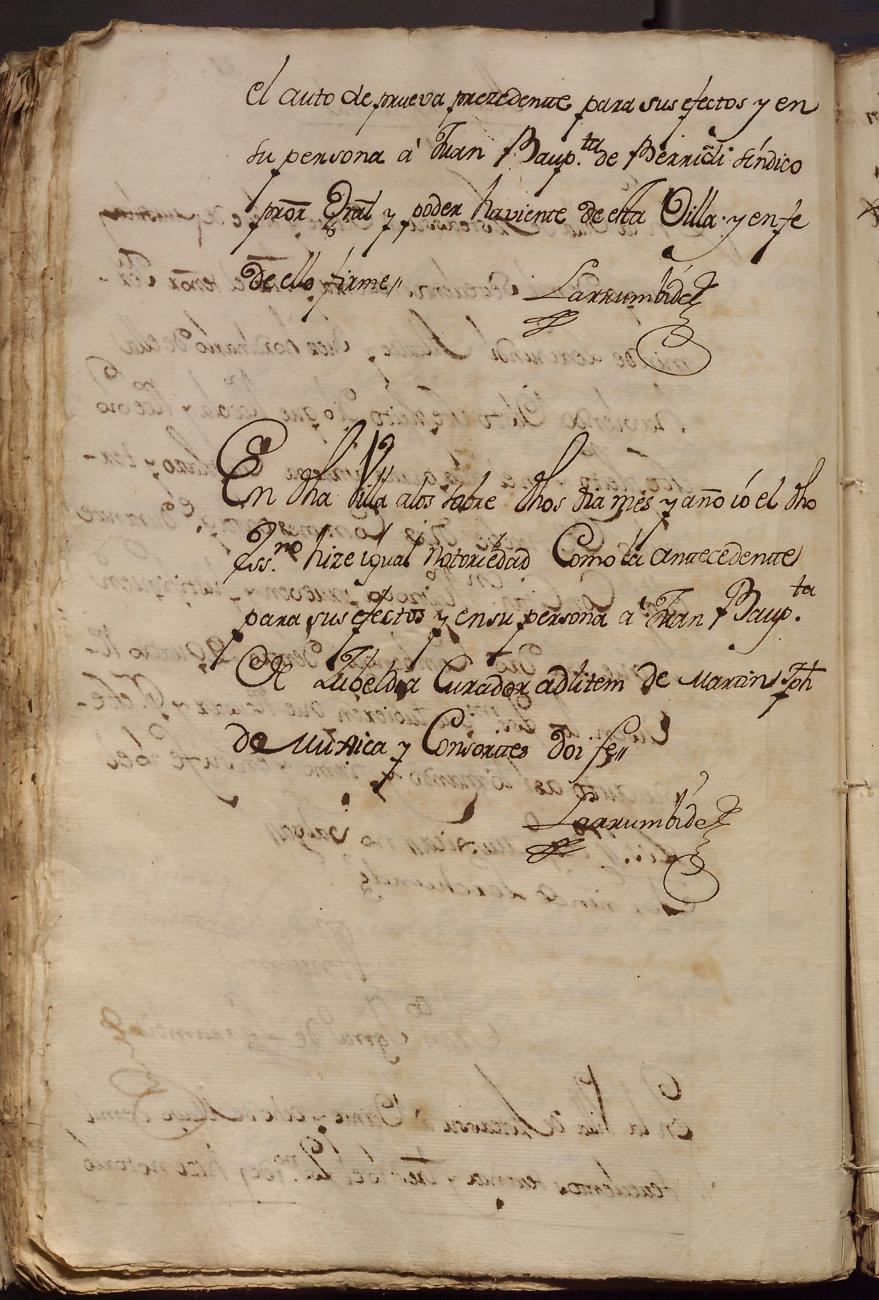 el auto de prueva prezedente para sus efectos y en
su persona à Juan Baup.ta de Berridi síndico
pror Gral y poder haviente de esta Villa y en fe
de ello firme
Larrumbide
En dha Villa alos sobre dhos dia mes y año io el dho
Ess.no hize igual Notoriedad Como la antecedente
para sus efectos y en su persona à Juan Baup.ta
de Zubeldia Curador adlitem de Martin Jph
de Muxica y Consortes doi fe
Larrumbide